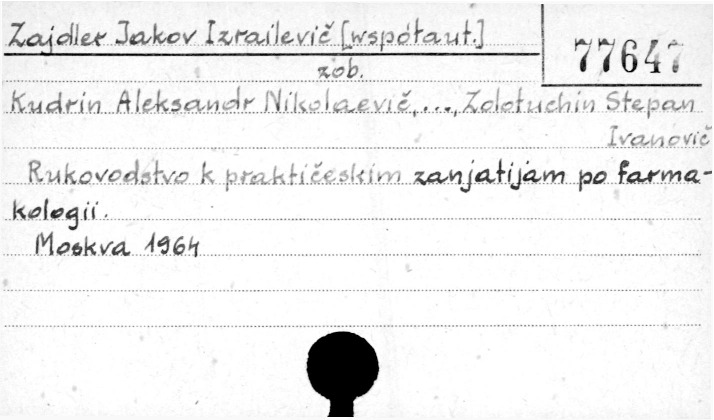 Zajdler Jakov Izrailevič [współaut.]
77647
zob.
Kudrin Aleksandr Nikolaevič,..., Zolotuchin Stepan
Ivanovič
Rukovodstvo k praktičeskim zanjatijam po farma-
kologii.
Moskva 1964